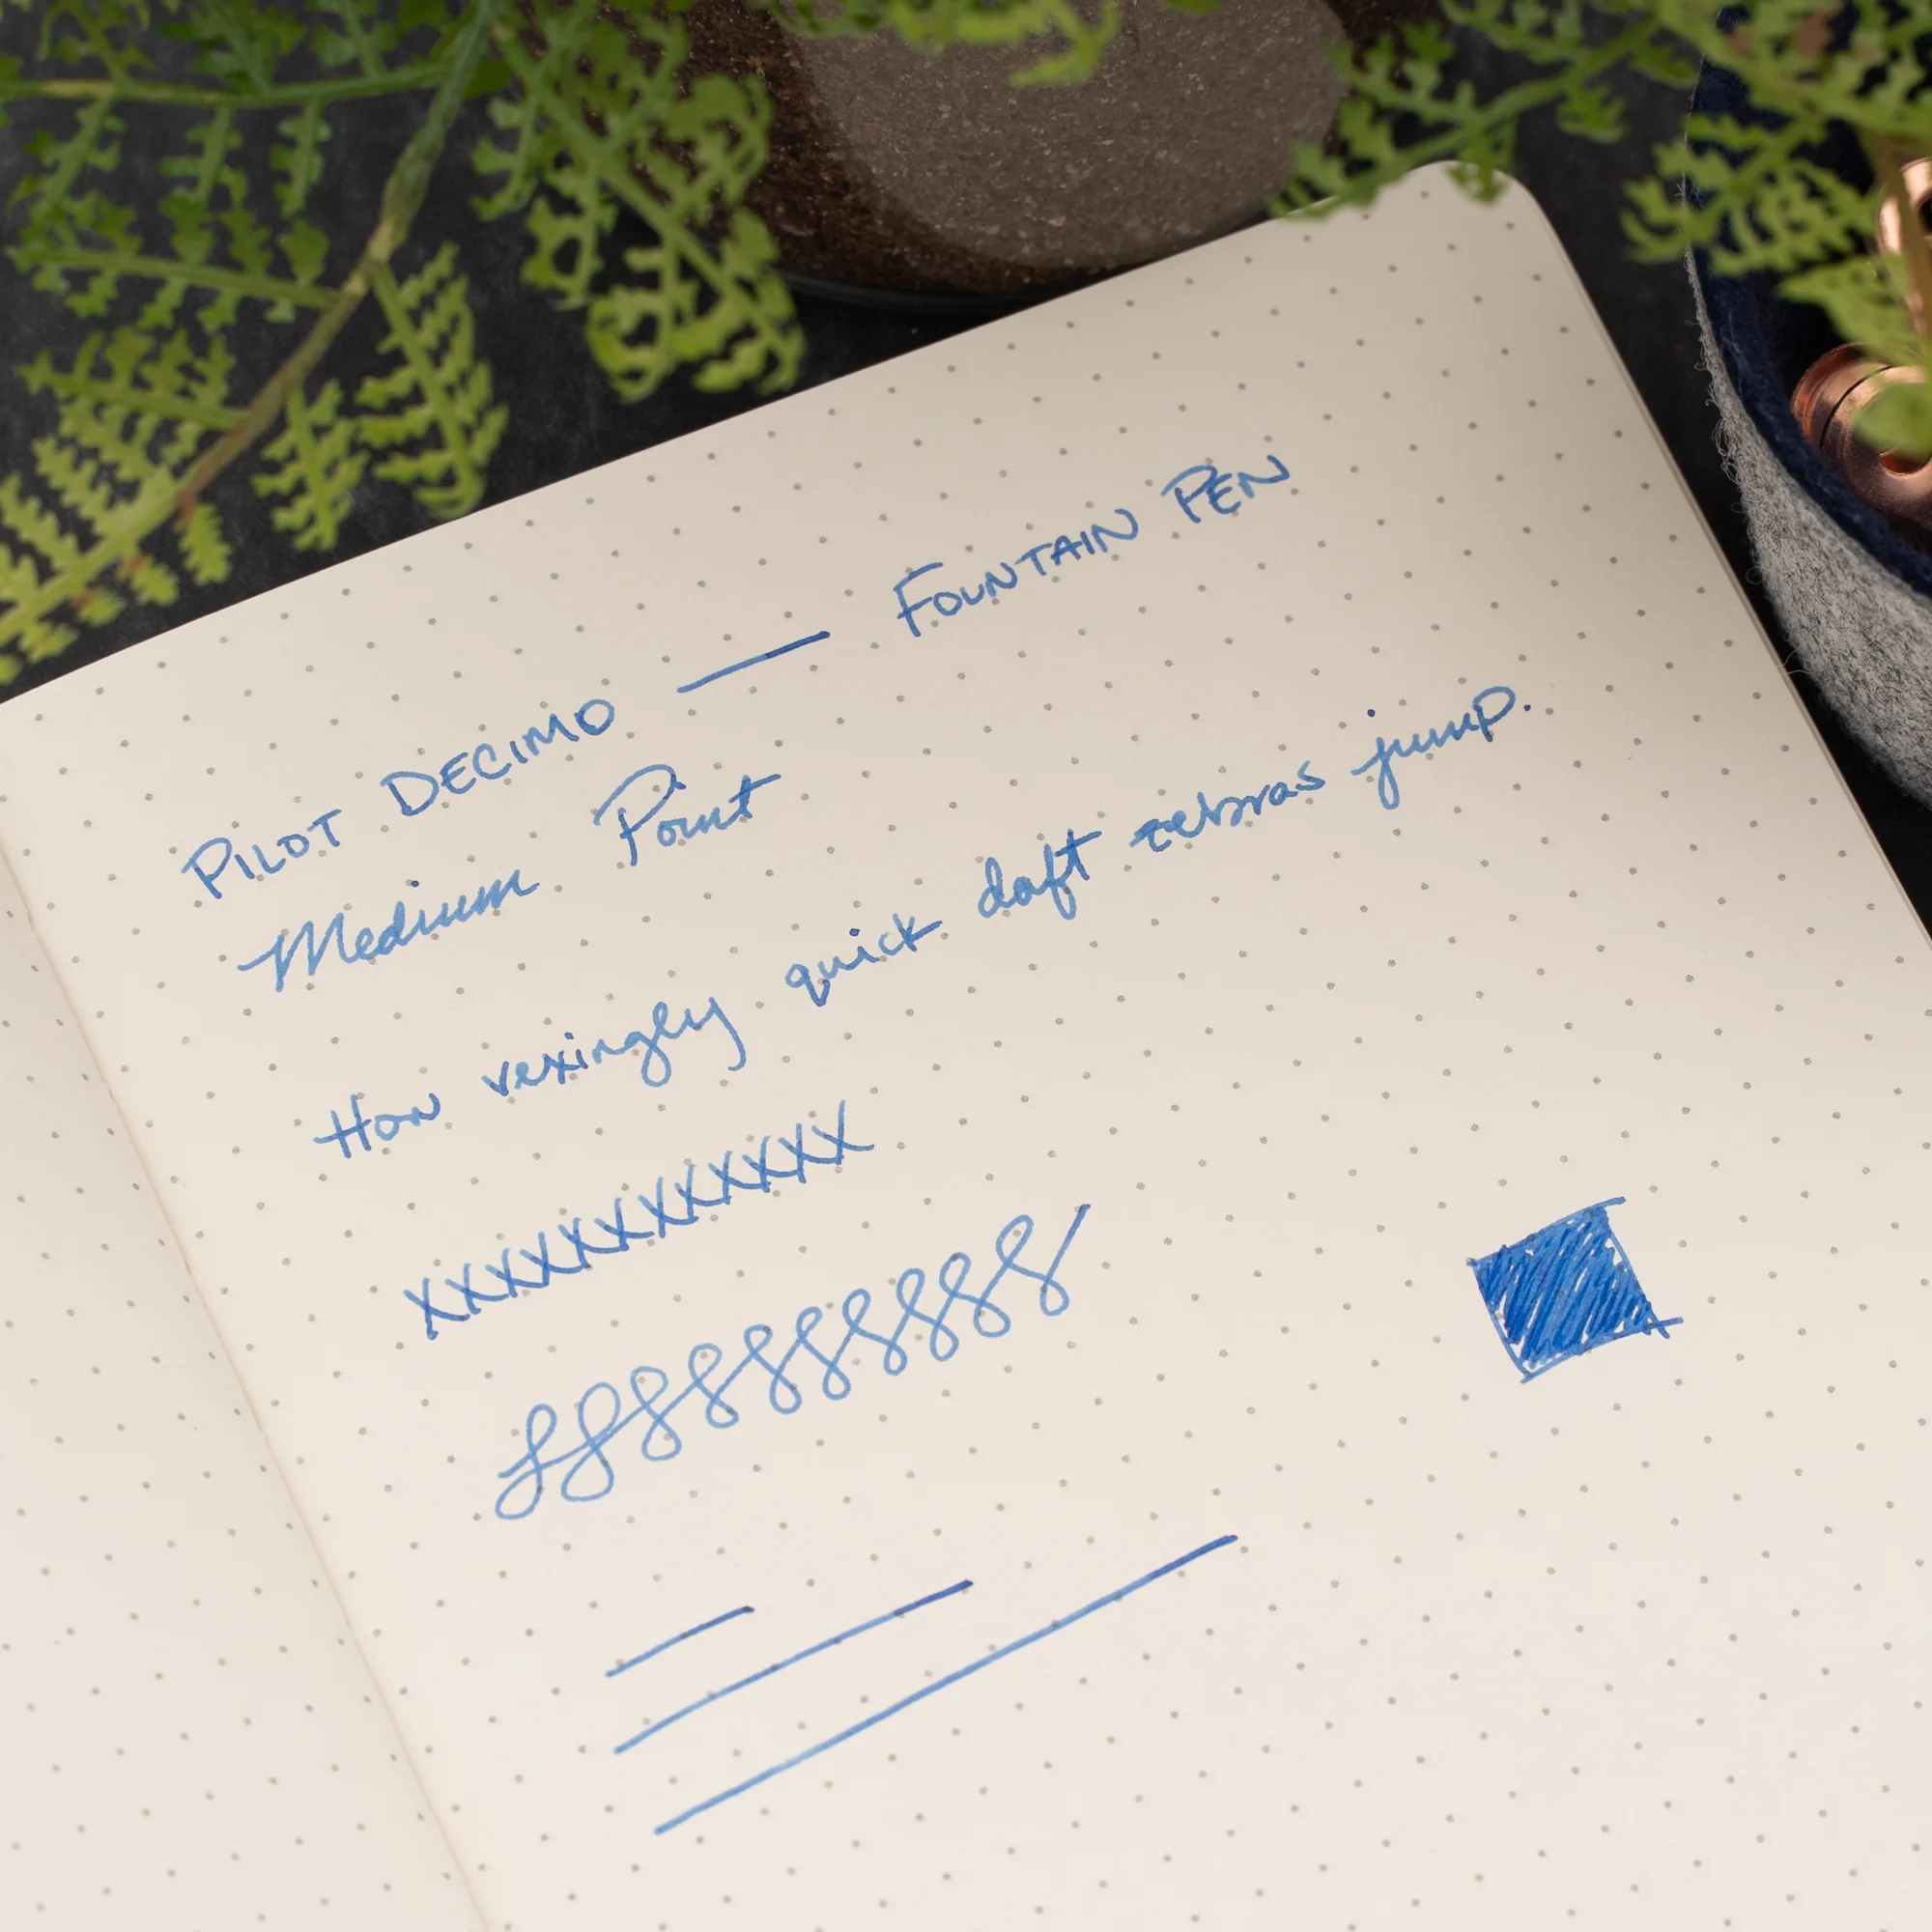 PILOT DECIMO — FOUNTAIN PEN
Medium Point
How vexingly quick daft zebras jump.
XXXXXXXXXXXX